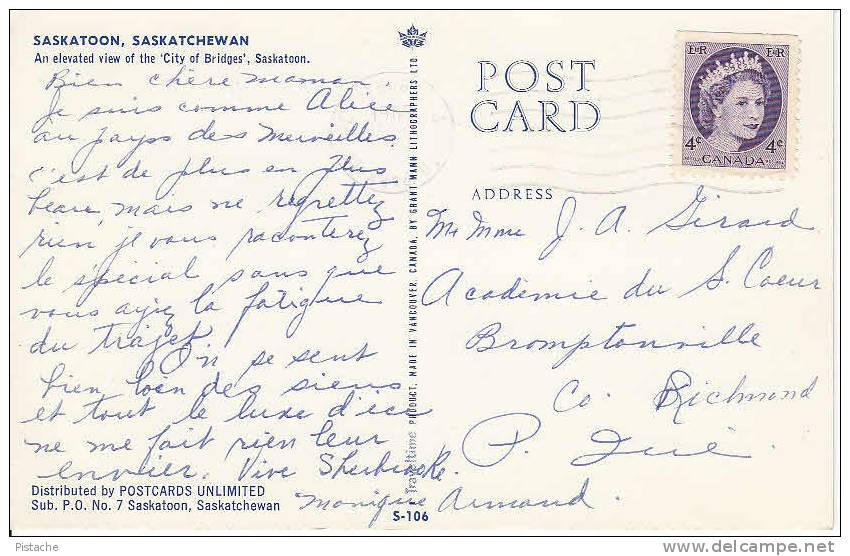 SASKATOON, SASKATCHEWAN
An elevated view of the 'City of Bridges', Saskatoon.
Bien chère maman,
Je suis comme Alice
au pays des Merveilles.
c'est de plus en plus
beau, mais ne regrettez
rien, je vous raconterez
le spécial sans que
vous ayiez la fatigue
du trajet.
On se sent
bien loin des siens
et tout le luxe d'ici
ne me fait rien leur
envier. Vive Sherbrooke.
Monique Armand.
Distributed by POSTCARDS UNLIMITED
Sub. P.O. No. 7 Saskatoon, Saskatchewan
S-106
Traveltime PRODUCT, MADE IN VANCOUVER, CANADA, BY GRANT-MANN LITHOGRAPHERS LTD.
POST
CARD
ADDRESS
E II R E II R
4¢ 4¢
CANADA
Mme J. A. Girard
Académie du S. Coeur
Bromptonville
Co. Richmond
P. Qué.
Pistache
www.delcampe.net